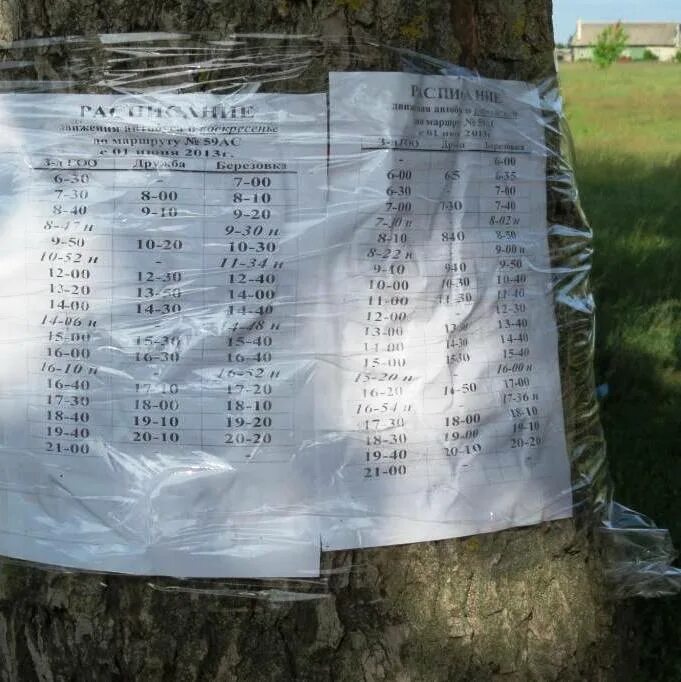 РАСПИСАНИЕ
движения автобуса в воскресенье
по маршруту № 59АС
с 01 июня 2013г.
3-д ГОО Дружба Березовка
6-30 - 7-00
7-30 8-00 8-10
8-40 9-10 9-20
8-47 н 9-30 н
9-50 10-20 10-30
10-52 н - 11-34 н
12-00 12-30 12-40
13-20 13-50 14-00
14-00 14-30 14-40
14-06 н - 14-48 н
15-00 15-30 15-40
16-00 16-30 16-40
16-10 н - 16-52 н
16-40 17-10 17-20
17-30 18-00 18-10
18-40 19-10 19-20
19-40 20-10 20-20
21-00 -
РАСПИСАНИЕ
движения автобуса в
по маршруту № 59АС
с 01 июня 2013г.
3-д ГОО Березовка
- 6-00
6-00 6-35
6-30 - 7-00
7-00 7-30 7-40
7-20 н 8-02 н
8-10 8-40 8-50
8-22 н - 9-00 н
9-10 9-40 9-50
10-00 10-30 10-40
11-00 11-30 11-40
12-00 - 12-30
13-00 13-40
14-00 14-30 14-40
15-00 15-30 15-40
15-20 н - 16-00 н
16-20 16-50 17-00
16-54 н 17-36 н
17-30 18-00 18-10
18-30 19-00 19-10
19-40 20-10 20-20
21-00 -